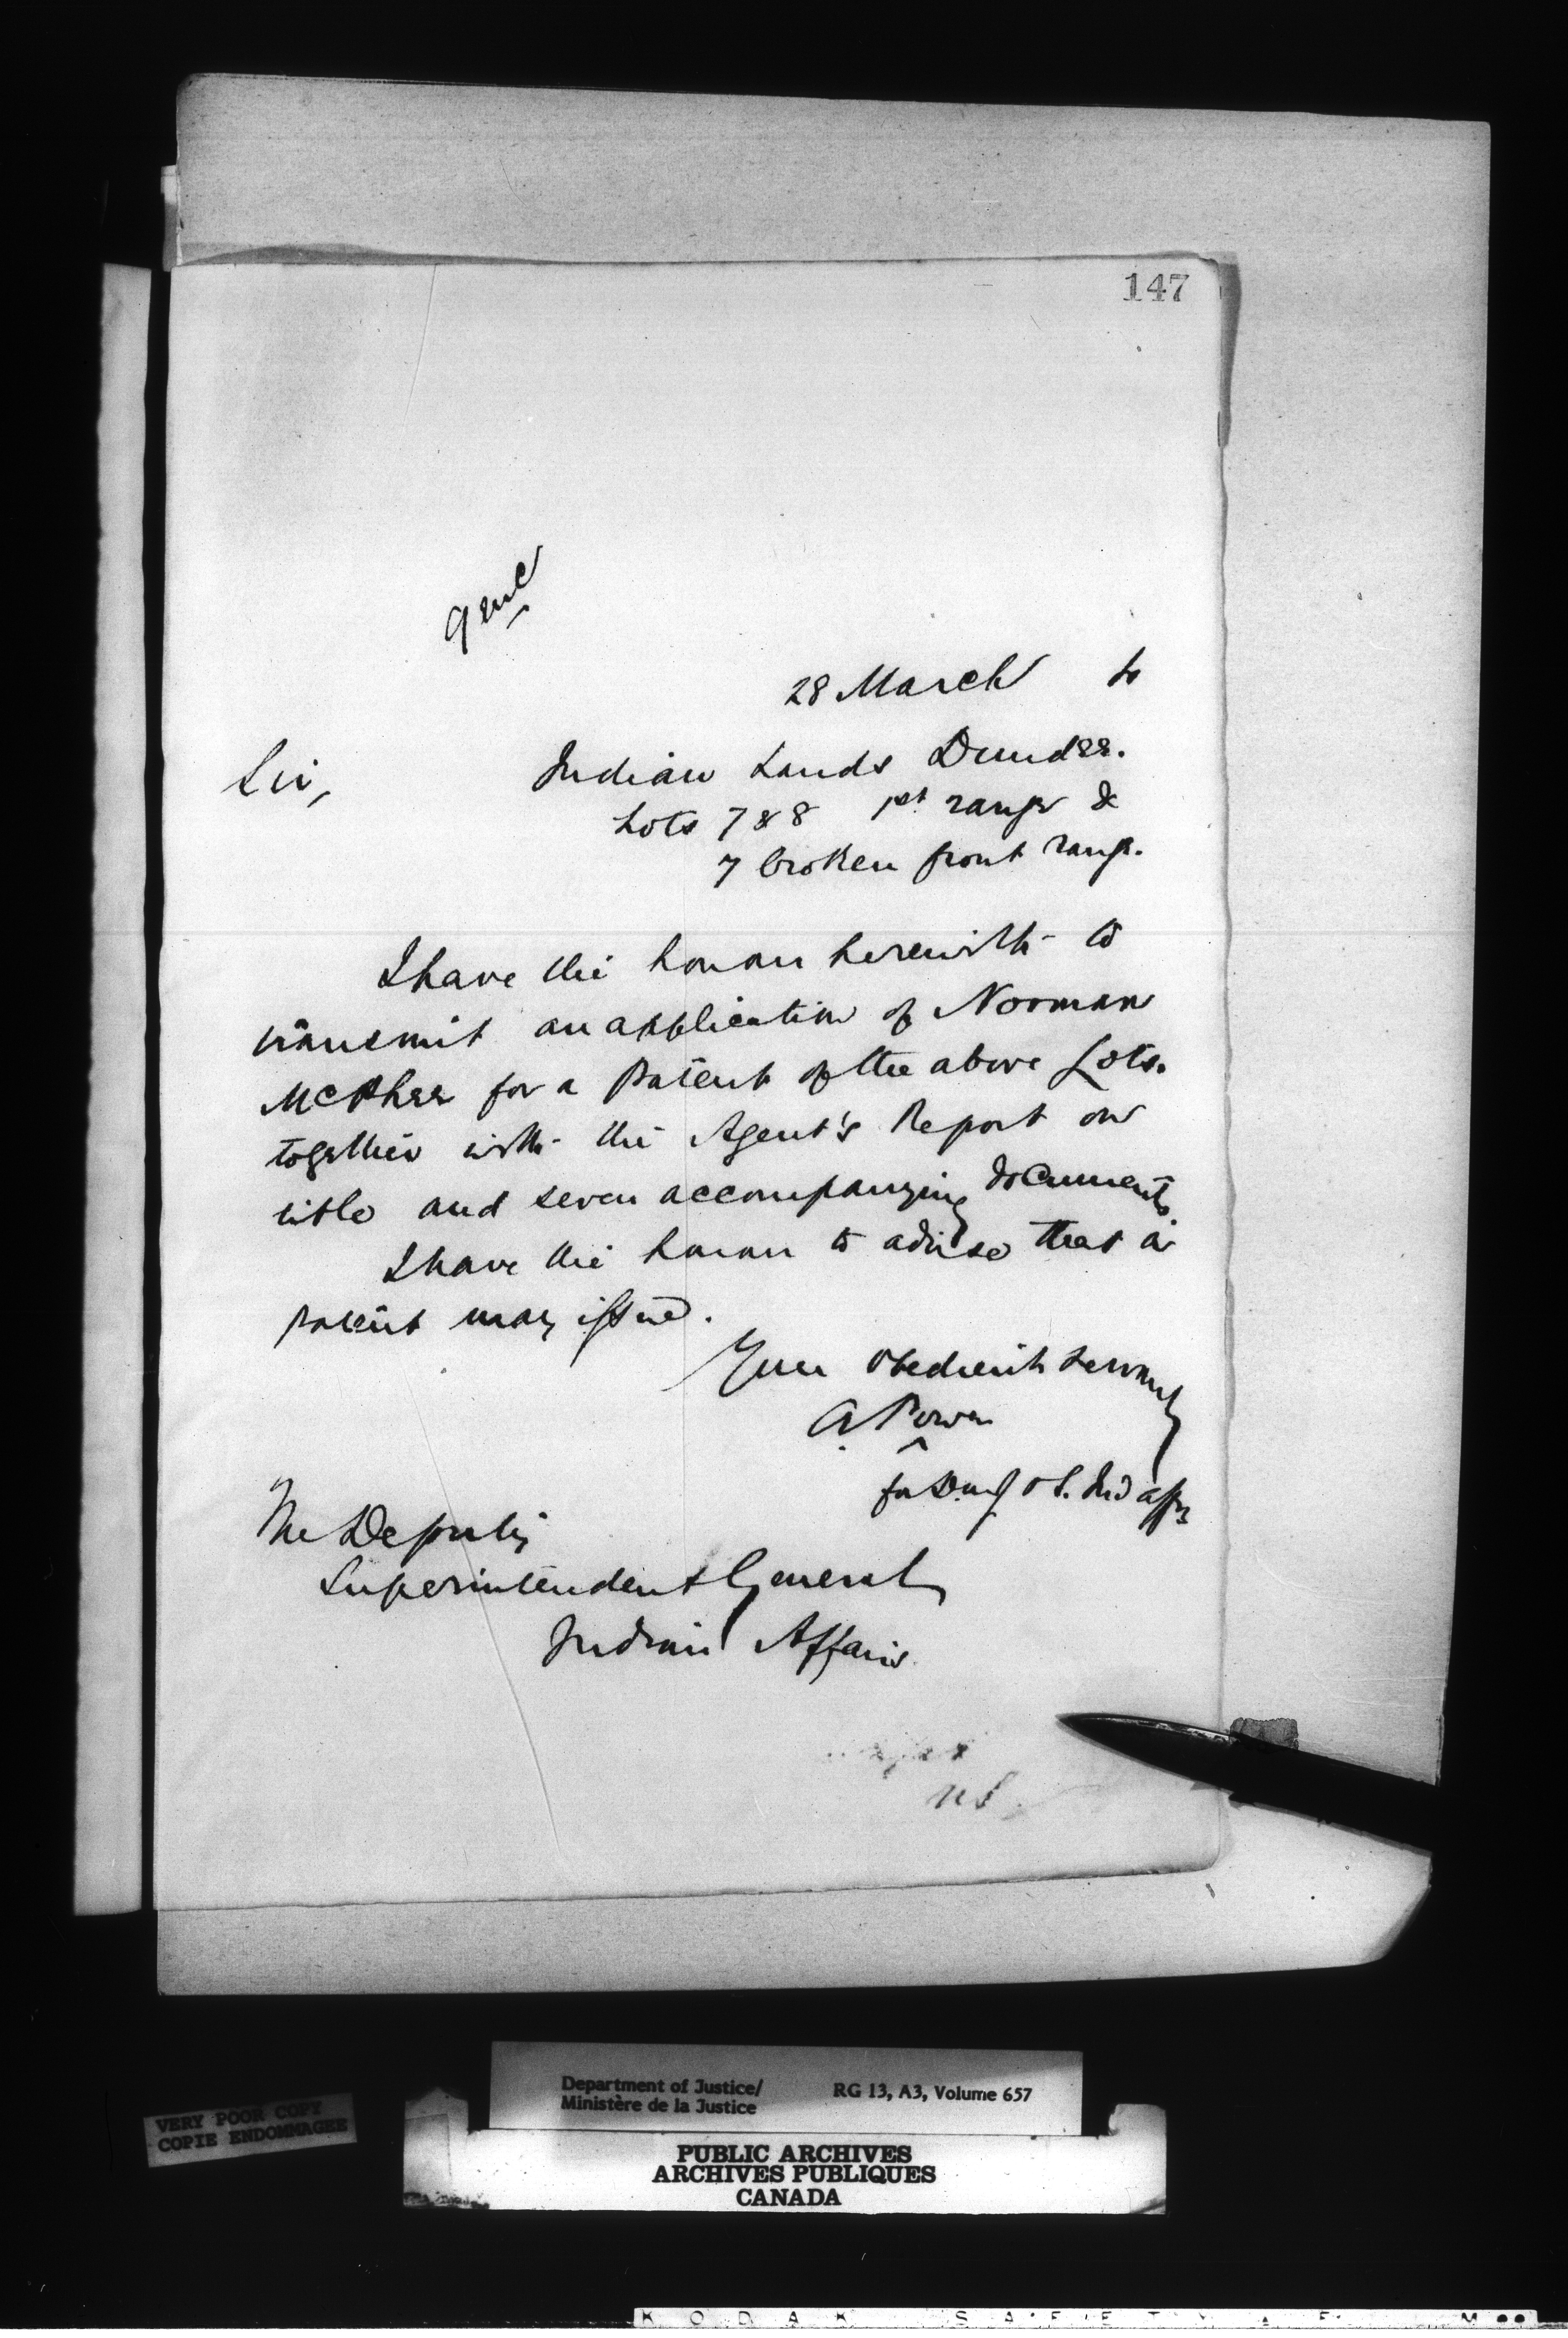 147
28 March
Sir,
Indian Lands Dundee.
Lots 7 & 8 1st range &
7 broken front range.
I have the honour herewith to
transmit an application of Norman
McPhee for a Patent of the above Lots.
together with the Agent's Report on
title and seven accompanying documents
I have the honour to advise that a
patent may issue.
Your obedient servant
A. Power
for D. M. of J.
The Deputy
Superintendent General
Indian Affairs
Department of Justice/
Ministère de la Justice
RG 13, A3, Volume 657
VERY POOR COPY
COPIE ENDOMMAGEE
PUBLIC ARCHIVES
ARCHIVES PUBLIQUES
CANADA
KODAK SAFETY